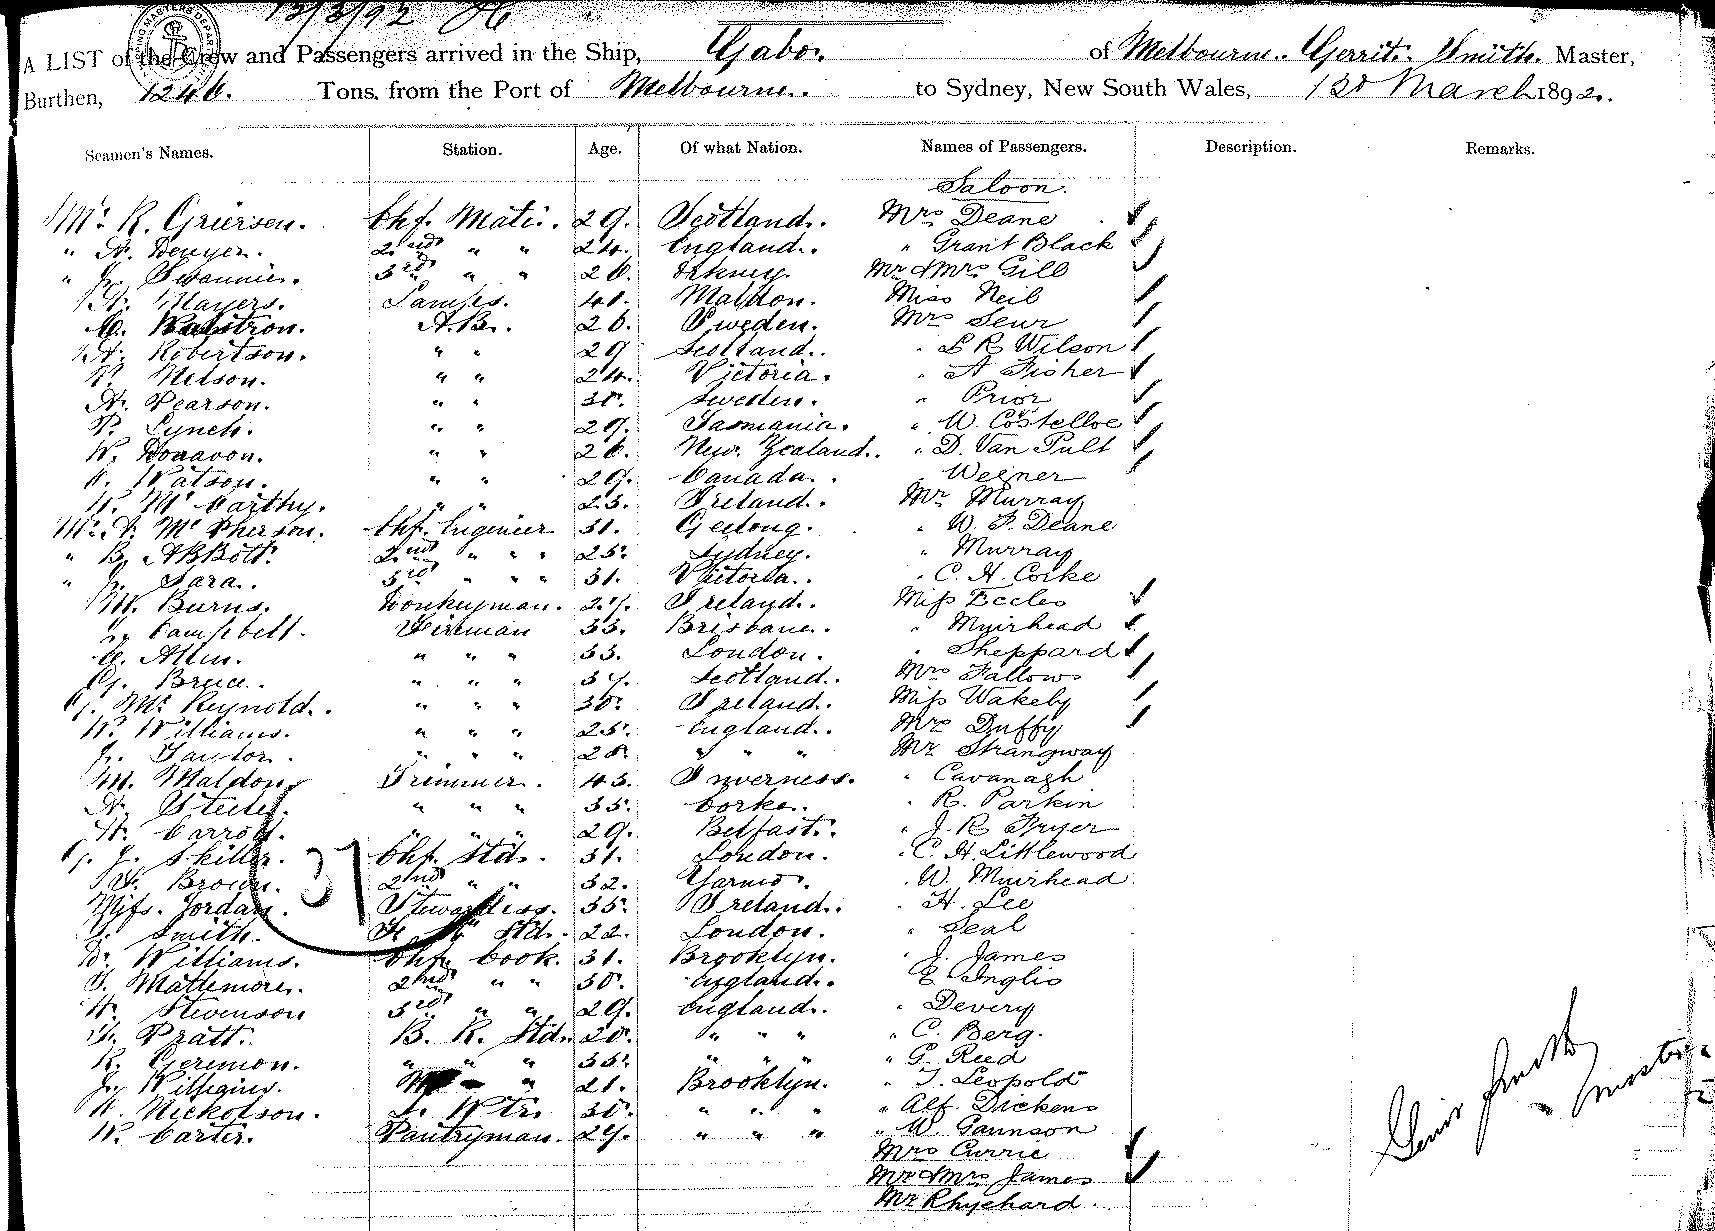 13/3/92
A LIST of the Crew and Passengers arrived in the Ship, Gabo. of Melbourne. Gerrit. Smith. Master,
Burthen, 1246. Tons, from the Port of Melbourne. to Sydney, New South Wales, 13th March 1892.
Seamen's Names. Station. Age. Of what Nation. Names of Passengers. Description. Remarks.
Saloon.
Mr. R. Grierson. Chf. Mate. 29. Scotland. Mrs Deane
" 2nd " " 24. England. " Grant Black
" 3rd " " 26. Orkney. Mr & Mrs Gill
Mayers. Lamps. 41. Maldon. Miss Neil
A.B. 26. Sweden. Mrs Seur
Robertson. " " 29 Scotland. " L R Wilson
Nelson. " " 24. Victoria. " A Fisher
Pearson. " " Sweden. " Prior
P. Lynch. " " 29. Tasmania. " W. Costelloe
W. Donavon. " " 26. New Zealand. " D. Van Pult
Watson. " " 29. Canada. Wegner
McCarthy. " " 23. Ireland. Mr Murray
Mr. McPherson. Chf. Engineer 31. Geelong. " W. F. Deane
" Abbott. 2nd " " " 25. Sydney. " Murray
" Sara. 3rd " " " 31. Victoria. " C. H. Corke
Burns. Donkeyman. 27. Ireland. Miss Eccles
Campbell. Fireman 33. Brisbane. " Muirhead
Allen. " " " 33. London. " Sheppard
Bruce. " " " 37. Scotland. Mrs Fallows
McReynold. " " " Ireland. Miss Wakeby
W. Williams. " " " 25. England. Mrs Duffy
" " " 28. " " " Mr Strangway
Maldon, Trimmer. 43. Inverness. " Cavanagh
" " " 35. Corke. " R. Parkin
Carroll. " " " 29. Belfast. " J. R Fryer
37
Skiller. Chf. Std. 31. London. " C. H. Littlewood
Brown. 2nd " " 32. " W. Muirhead
Miss. Jordan. Stewardess. 35. Ireland. " H. Lee
Smith. Std. 22. London. " Seal
Williams. Chf. Cook. 31. Brooklyn. " J. James
2nd " " 30. England. " E Inglis
Stevenson 3rd " " 29. England. " Devery
Pratt. B. R. Std. 20. " " " " C. Berg.
" " " 35. " " " " G. Reed
" 21. Brooklyn. " T. Leopold
W. Nickolson. 30. " " " " Alf. Dickens
W. Carter. Pantryman. 27. " " " " W. Gaunson
Mrs Currie
Mr & Mrs James
Mr Rhychard.